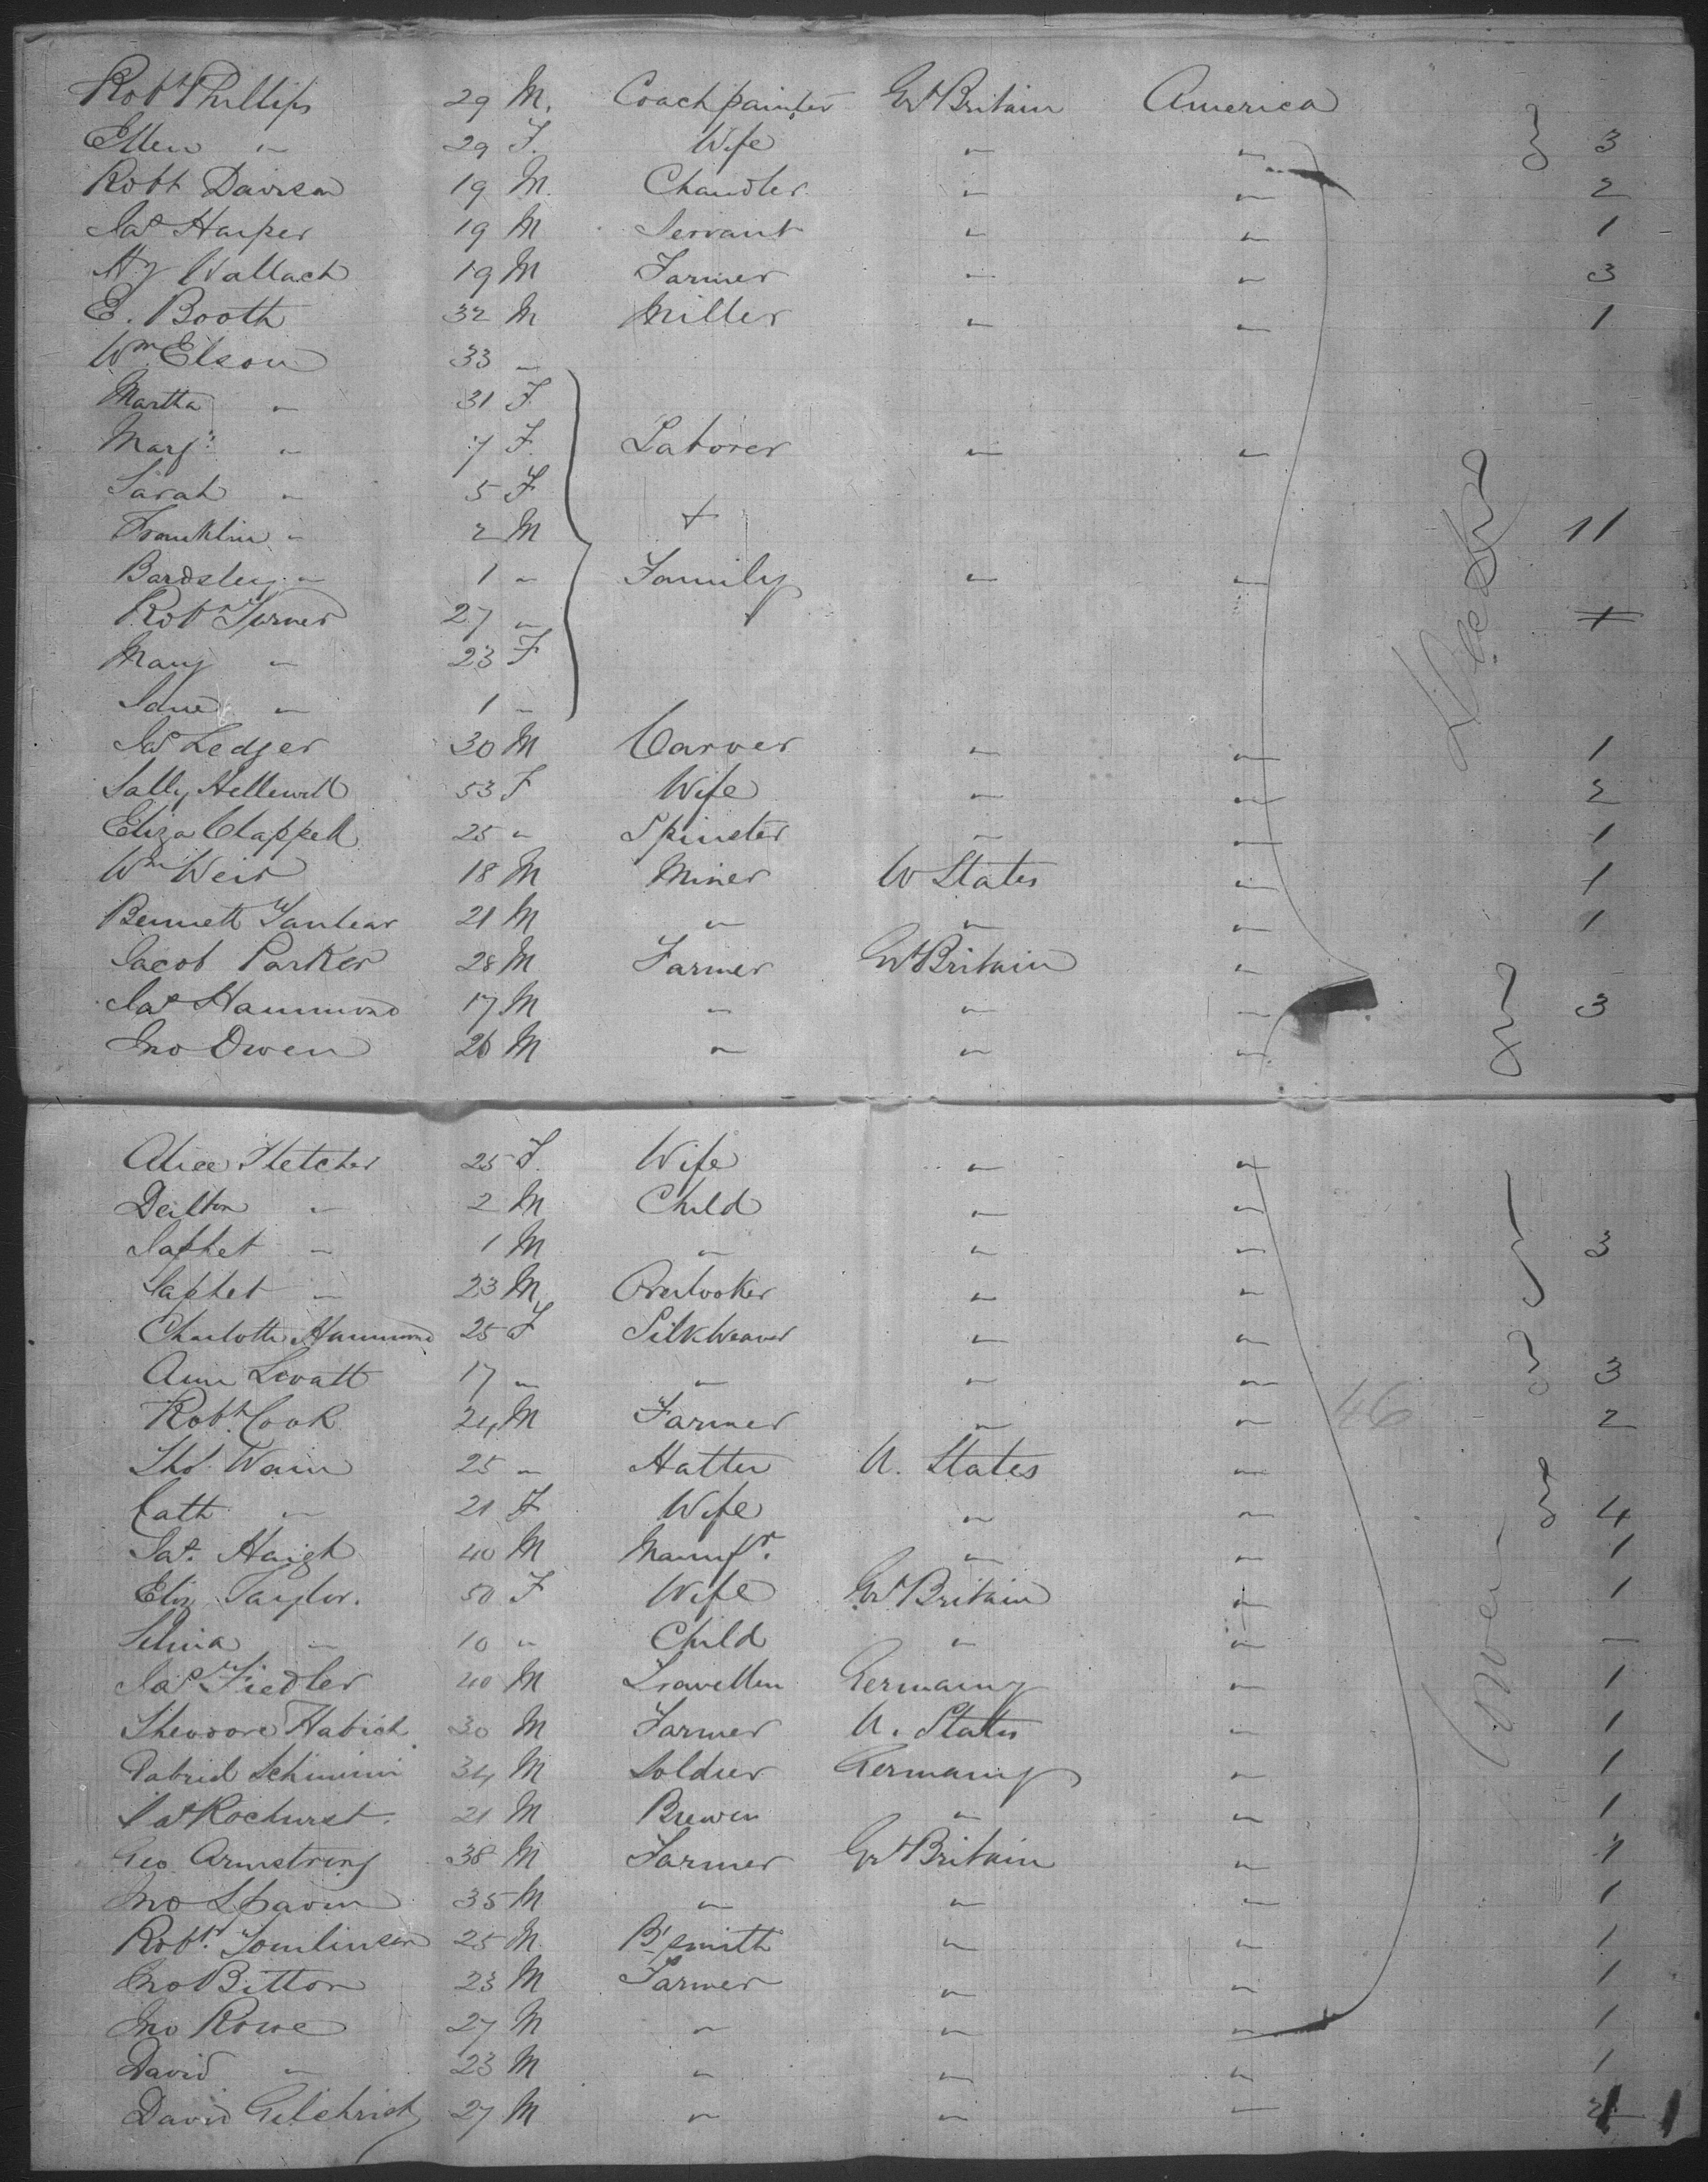 Robt Phillips 29 M. Coach painter Gt Britain America
Ellen " 29 F. Wife " " 3
Robt Davison 19 M. Chandler " " 2
Jas Harper 19 M Servant " " 1
Hy Wallach 19 M Farmer " " 3
E. Booth 32 M Miller " " 1
Wm Elson 33 "
Martha " 31 F
Mary " 7 F Laborer " "
Sarah " 5 F
Franklin " 2 M + 11
Bardsley " 1 " Family " "
Robt Turner 27 "
Mary " 23 F
Jane " 1 "
Jas Ledger 30 M Carver " " 1
Sally Hellewell 53 F Wife " " 2
Eliza Clappell 25 " Spinster " " 1
Wm Weir 18 M Miner U States " 1
Bennett 21 M " " " 1
Jacob Parker 28 M Farmer Gt Britain "
Jas Hammond 17 M " " " 3
Jno Owen 26 M " " "
Alice Fletcher 25 F. Wife " "
" 2 M Child " "
Japhet " 1 M " " " 3
Japhet " 23 M Overlooker " "
Charlotte Hammond 25 F Silk Weaver " "
Ann Lovatt 17 " " " " 3
Robt Cook 24 M Farmer " " 46 2
Thos Wain 25 " Hatter U. States "
Cath " 21 F Wife " " 4
Jas. Haigh 40 M Manufr. " " 1
Eliz Taylor. 50 F Wife Gt Britain " 1
Selina " 10 " Child " " —
Jas Fiedler 40 M Traveller Germany " 1
Theodore Habich 30 M Farmer U. States " 1
34 M Soldier Germany " 1
Rochurst. 21 M Brewer " " 1
Geo Armstrong 38 M Farmer Gt Britain " 1
Jno Spavin 35 M " " " 1
Robt. Tomlinson 25 M Bl smith " " 1
Jno Bitton 23 M Farmer " " 1
Jno Rowe 27 M " " " 1
David " 23 M " " " 1
David Gilchrist 27 M " " " 1